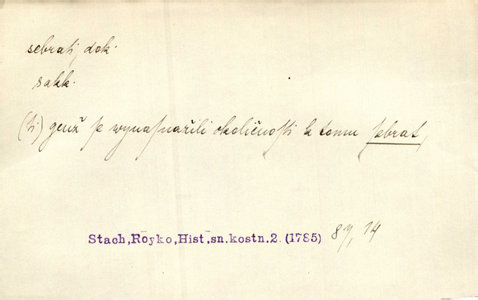 sebrati, dok.
sakk.
(ti) genž se wynasnažili okoličnosti k tomu sebrat,
Stach,Royko,Hist.sn.kostn.2.(1785) 87, 14